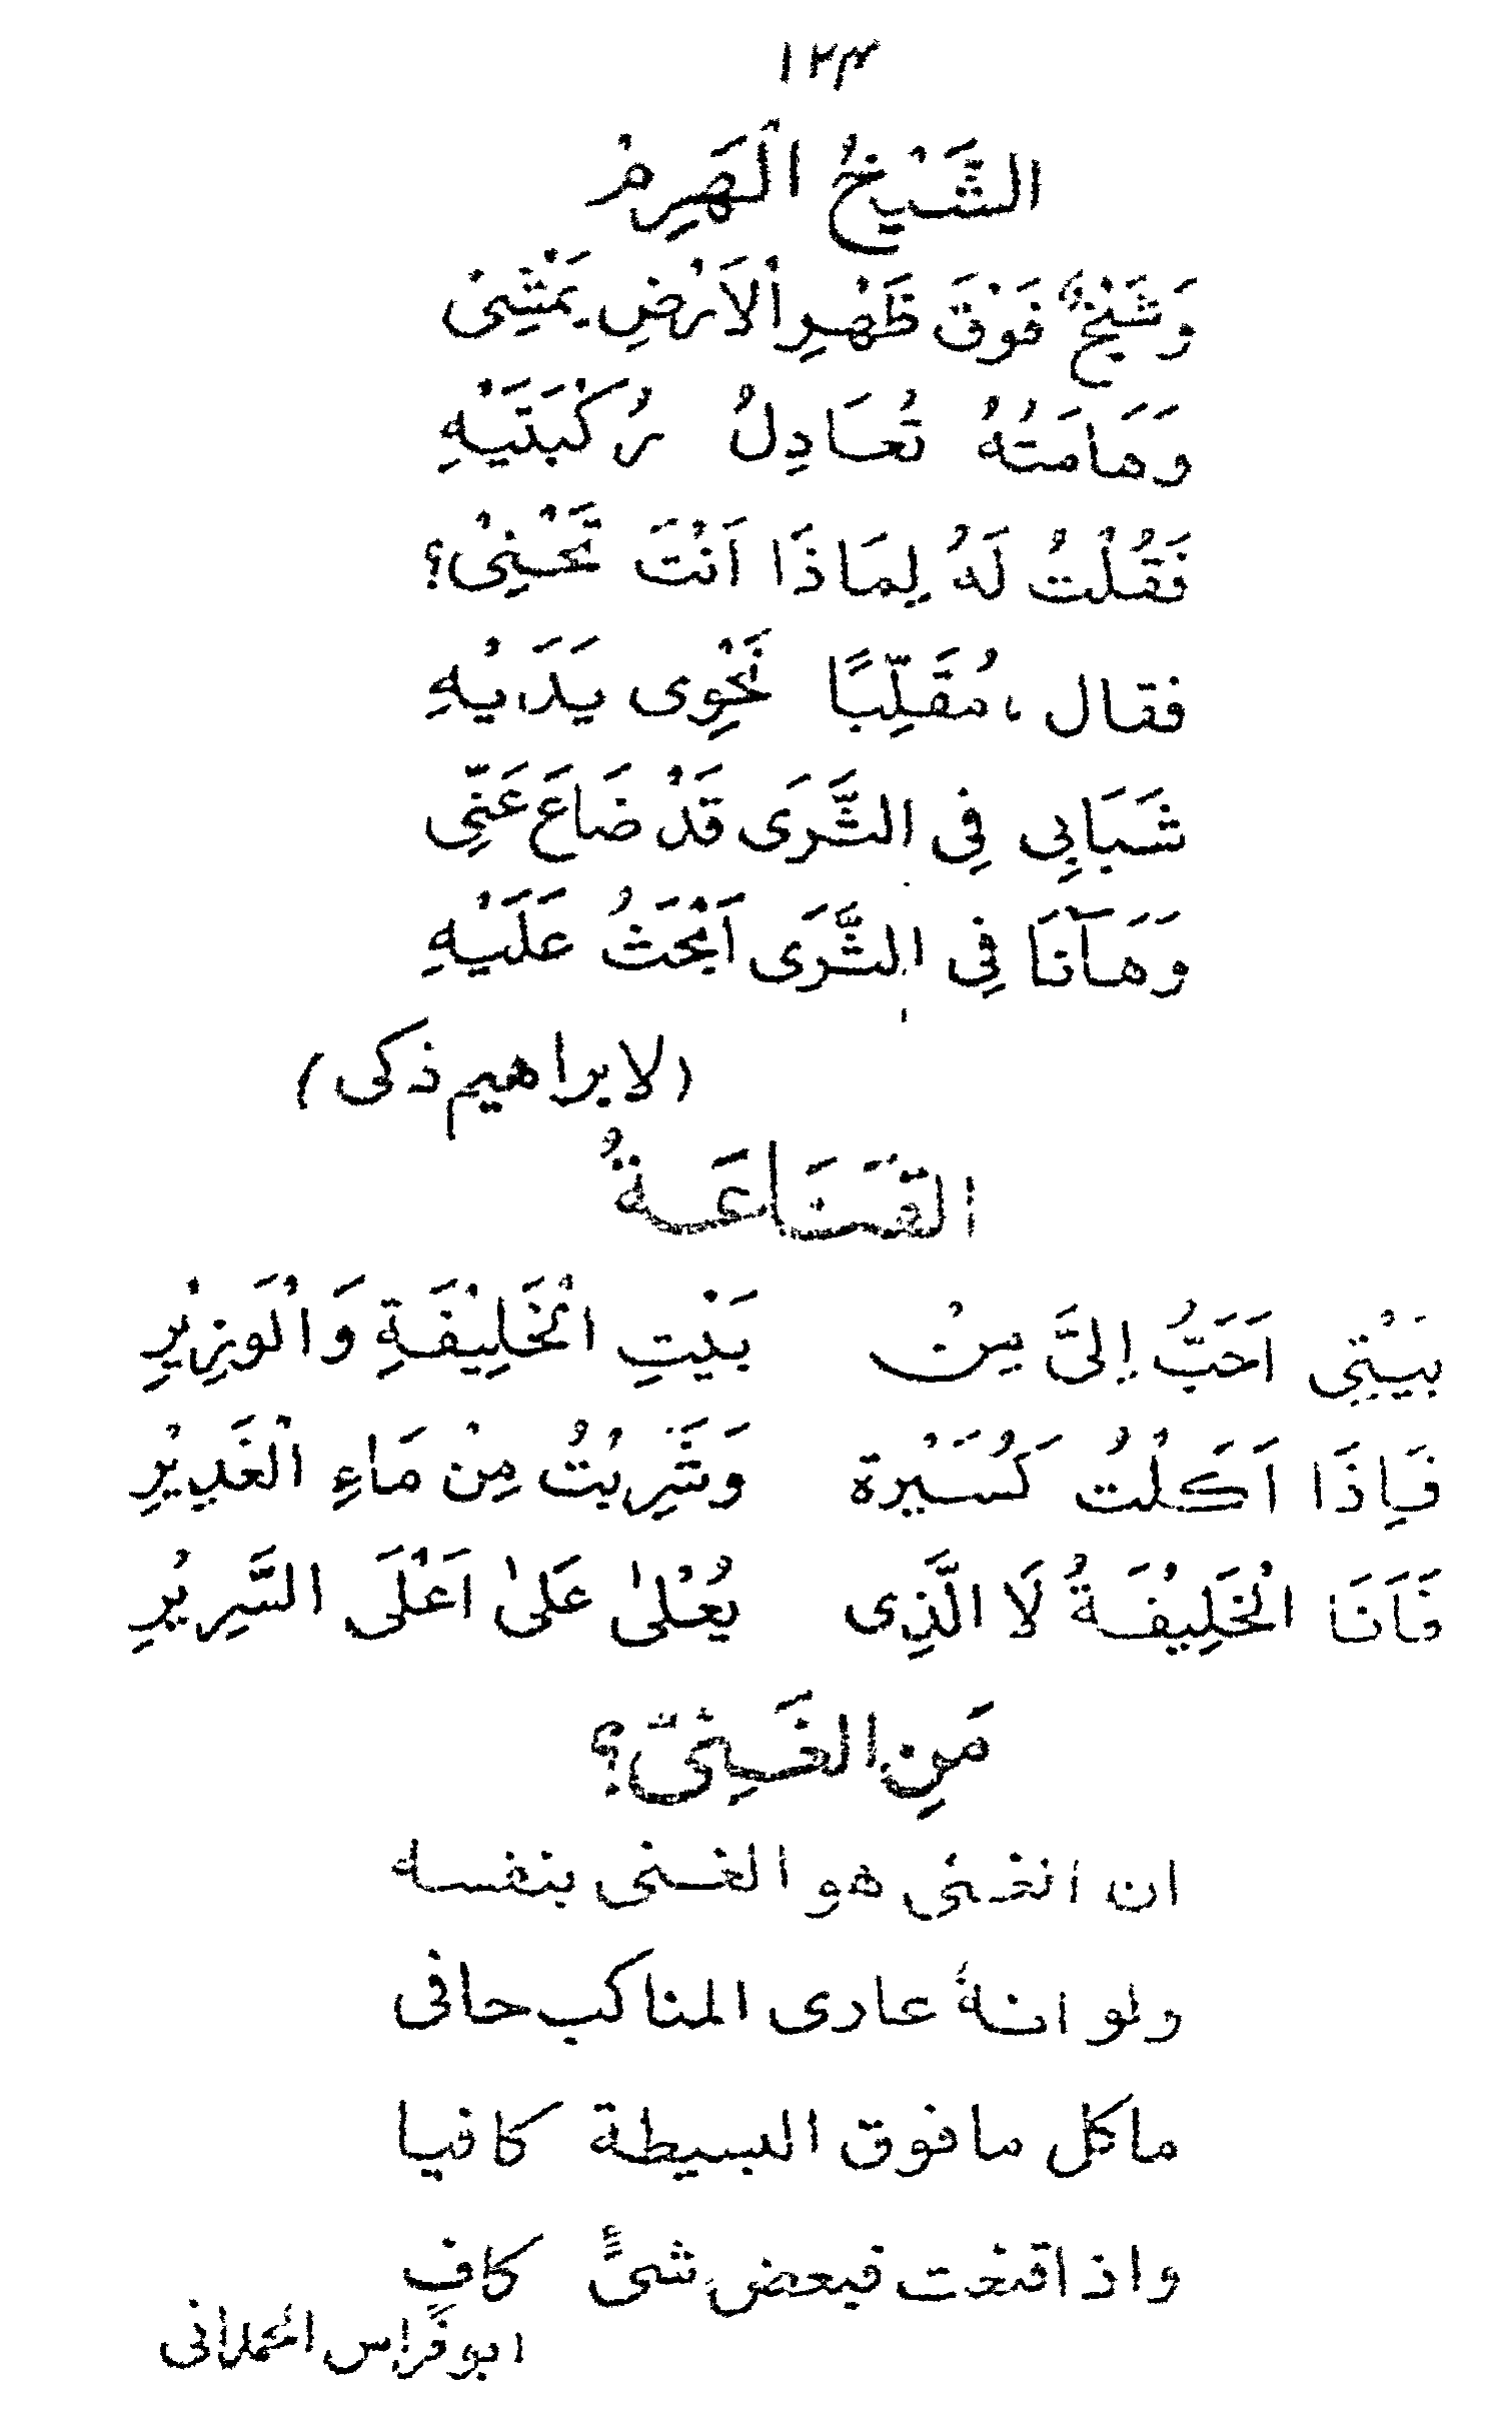 ١٢٣
الشَّيْخُ الْهَرِمْ
وَشَيْخٌ فَوْقَ ظَهْرِ الْاَرْضِ يَمْشِيْ
وَهَامَتُهُ تُعَادِلُ رُكْبَتَيْهِ
فَقُلْتُ لَهُ لِمَاذَا اَنْتَ تَحْنِيْ؟
فقال، مُقَلِّبًا نَحْوِى يَدَيْهِ
شَبَابِي فِي الثَّرَى قَدْ ضَاعَ عَنِّي
وَهَآنَا فِي الثَّرَى اَبْحَثُ عَلَيْهِ
(لابراهيم ذكى)
القَنَاعَةُ
بَيْتِي اَحَبُّ اِلىَّ مِنْ بَيْتِ الْخَلِيْفَةِ وَالْوَزِيْرِ
فَاِذَا اَكَلْتُ كَسُيْرة وَشَرِبْتُ مِنْ مَاءِ الْغَدِيْرِ
فَاَنَا الْخَلِيْفَةُ لَا الَّذِى يُعْلىٰ عَلىٰ اَعْلَى السَّرِيْرِ
مَنِ الغَنِيّ؟
ان الغنى هو الغنى بنفسه
ولو انهٗ عارى المناكب حافى
ما كل ما فوق البسيطة كافيا
واذا قنعت فبعض شىءٍ كافٍ
ابو فراس الحمدانى